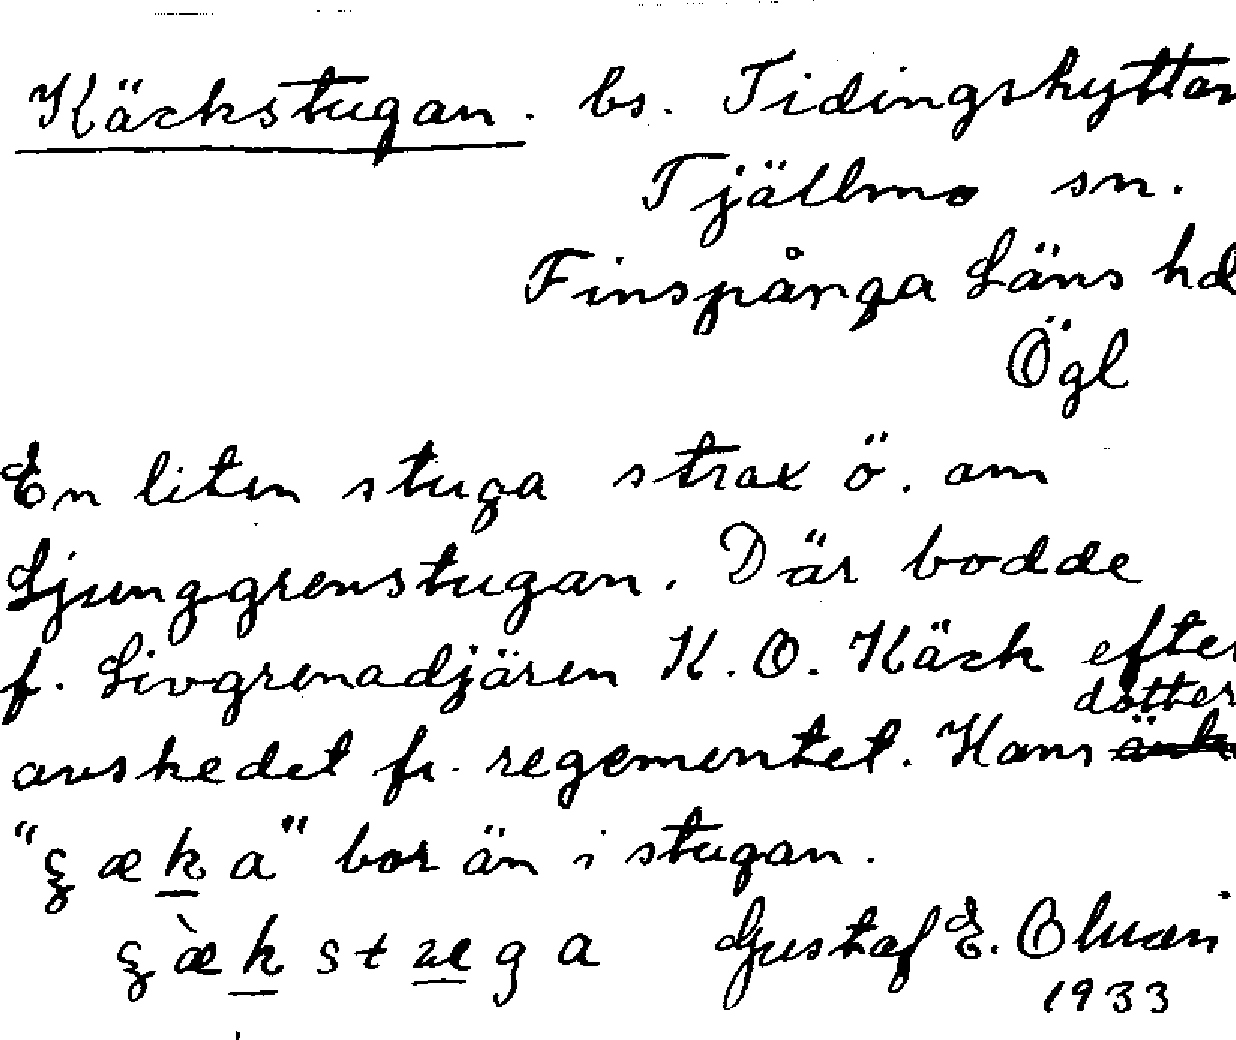 Käckstugan. bs. Tidingshyttan
Tjällmo sn.
Finspånga Läns hd
Ögl
En liten stuga strax ö. om
Ljunggrenstugan. Där bodde
f. Livgrenadjären K. O. Käck efter
dotter
avskedet fr. regementet. Hans änk
"ʂæka" bor än i stugan.
ʂæ̀kstuga Gustaf E.
1933